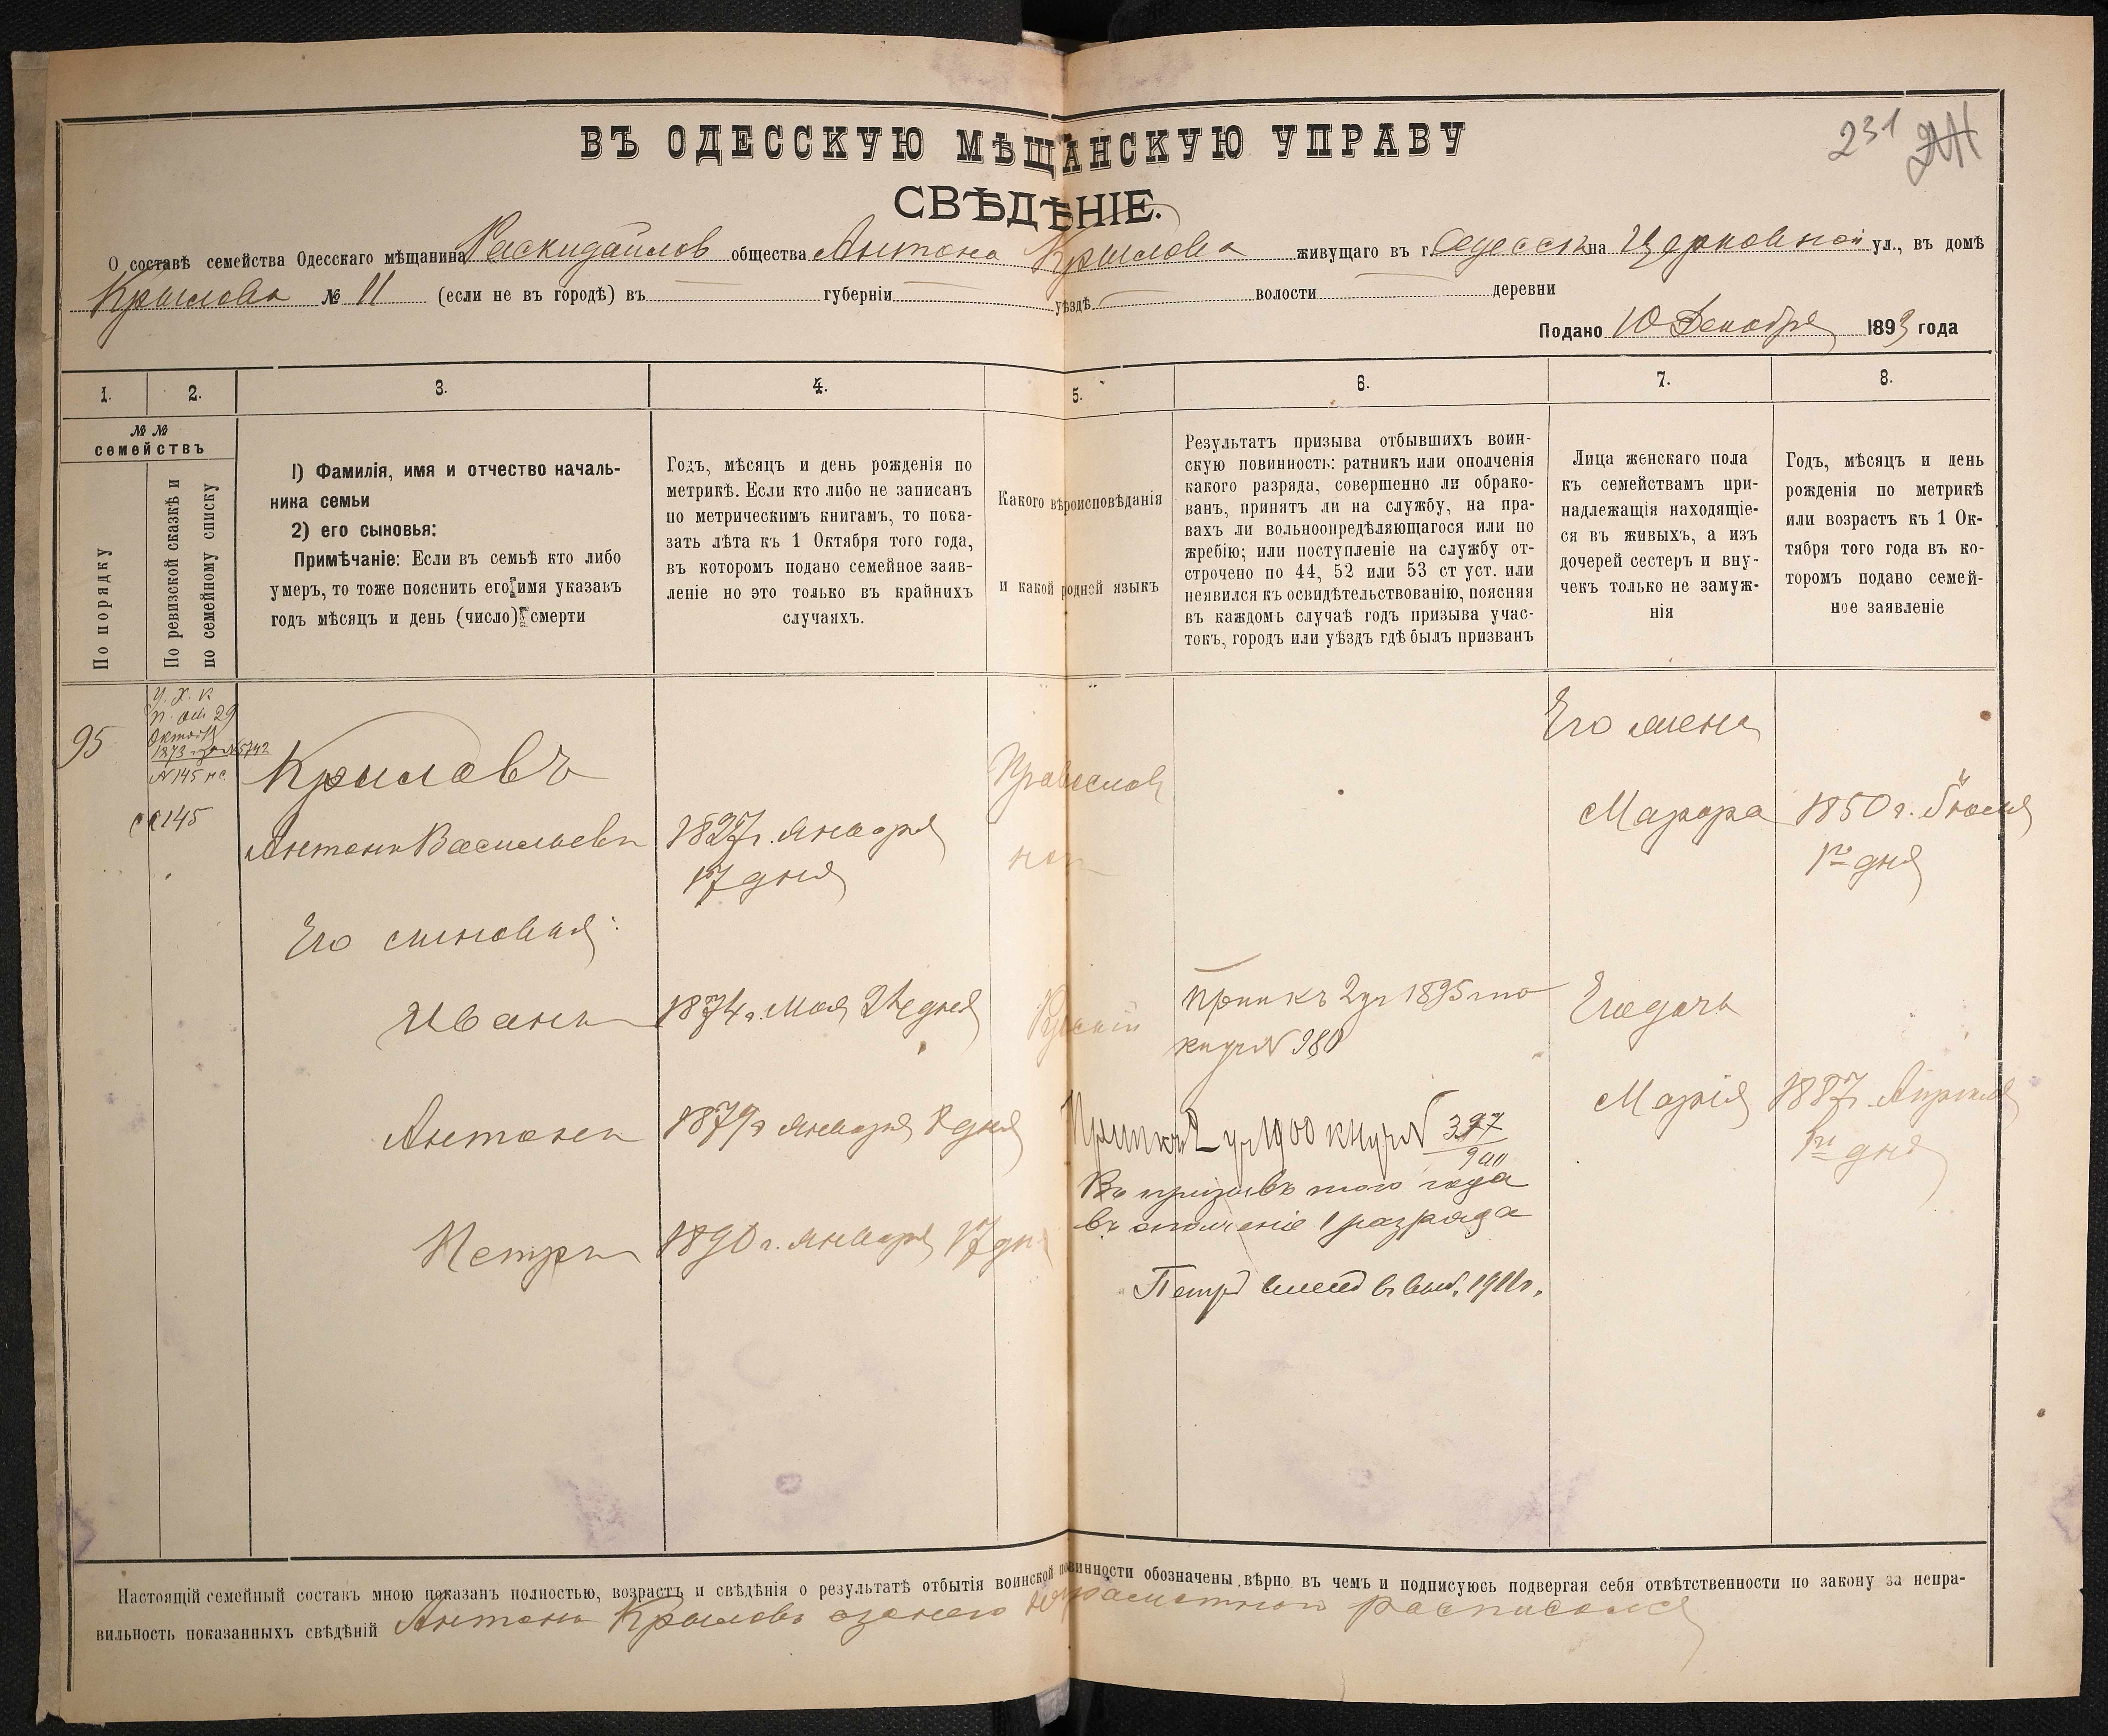 231
ВЪ ОДЕССКУЮ МѢЩАНСКУЮ УПРАВУ
СВѢДѢНІЕ.
О составѣ семейства Одесскаго мѣщанина Раскидайлов общества Антона Крылова живущаго въ г. Одессѣ на Церковной ул., въ домѣ
Крылова № 11 (если не въ городѣ) въ губерніи уѣздѣ волости деревни
Подано 10 Декабря 1893 года
1. 2. 3. 4. 5. 6. 7. 8.
№ № семействъ
По порядку
По ревизской сказкѣ и по семейному списку
I) Фамилія, имя и отчество началь-
ника семьи
2) его сыновья:
Примѣчаніе: Если въ семьѣ кто либо
умеръ, то тоже пояснить его имя указавъ
годъ мѣсяцъ и день (число) смерти
Годъ, мѣсяцъ и день рожденія по
метрикѣ. Если кто либо не записанъ
по метрическимъ книгамъ, то пока-
зать лѣта къ 1 Октября того года,
въ которомъ подано семейное заяв-
леніе но это только въ крайнихъ
случаяхъ.
Какого вѣроисповѣданія
и какой родной языкъ
Результатъ призыва отбывшихъ воин-
скую повинность: ратникъ или ополченія
какого разряда, совершенно ли обрако-
ванъ, принятъ ли на службу, на пра-
вахъ ли вольноопредѣляющагося или по
жребію; или поступленіе на службу от-
строчено по 44, 52 или 53 ст уст. или
неявился къ освидѣтельствованію, поясняя
въ каждомъ случаѣ годъ призыва учас-
токъ, городъ или уѣздъ гдѣ былъ призванъ
Лица женскаго пола
къ семействамъ при-
надлежащія находящіе-
ся въ живыхъ, а изъ
дочерей сестеръ и вну-
чекъ только не замуж-
нія
Годъ, мѣсяцъ и день
рожденія по метрикѣ
или возрастъ къ 1 Ок-
тября того года въ ко-
торомъ подано семей-
ное заявленіе
95
29
Октября
1873 года № 5742
№ 145
145
Крыловъ
Антонъ Васильевъ 1827 г. Января
17 дня
Православ
ное
Его жена
Марфа 1850 г. Іюля
1го дня
Его сыновья:
Иванъ 1874 г. Мая 24 дня Русскій
2 уч 1895
№ 980
Его дочь
Марія 1887 г. Апреля
1го дня
Антонъ 1879 г Января 8 дня
2 уч 1900 № 397
Въ призывъ того года
въ ополченіе 1 разряда
Петръ 1890 г. Января 17 дня
Петръ 1911 г.
Настоящій семейный составъ мною показанъ полностью, возрастъ и свѣдѣнія о результатѣ отбытія воинской повинности обозначены вѣрно въ чемъ и подписуюсь подвергая себя отвѣтственности по закону за непра-
вильность показанныхъ свѣдѣній Антонъ Крыловъ неграмотнаго расписался